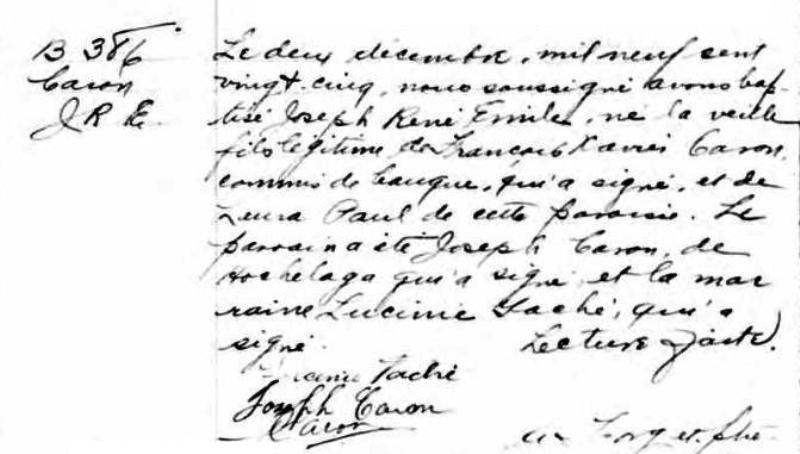 B 386
Caron
J R E.
Le deux décembre, mil neuf cent
vingt-cinq, nous soussigné avons bap-
tisé Joseph René Emile, né la veille
fils légitime de François Xavier Caron,
commis de banque, qui a signé, et de
Laura Paul de cette paroisse. Le
parrain a été Joseph Caron, de
Hochelaga qui a signé, et la mar
raine Lucinie Taché, qui a
signé. Lecture faite.
Taché
Joseph Caron
Caron